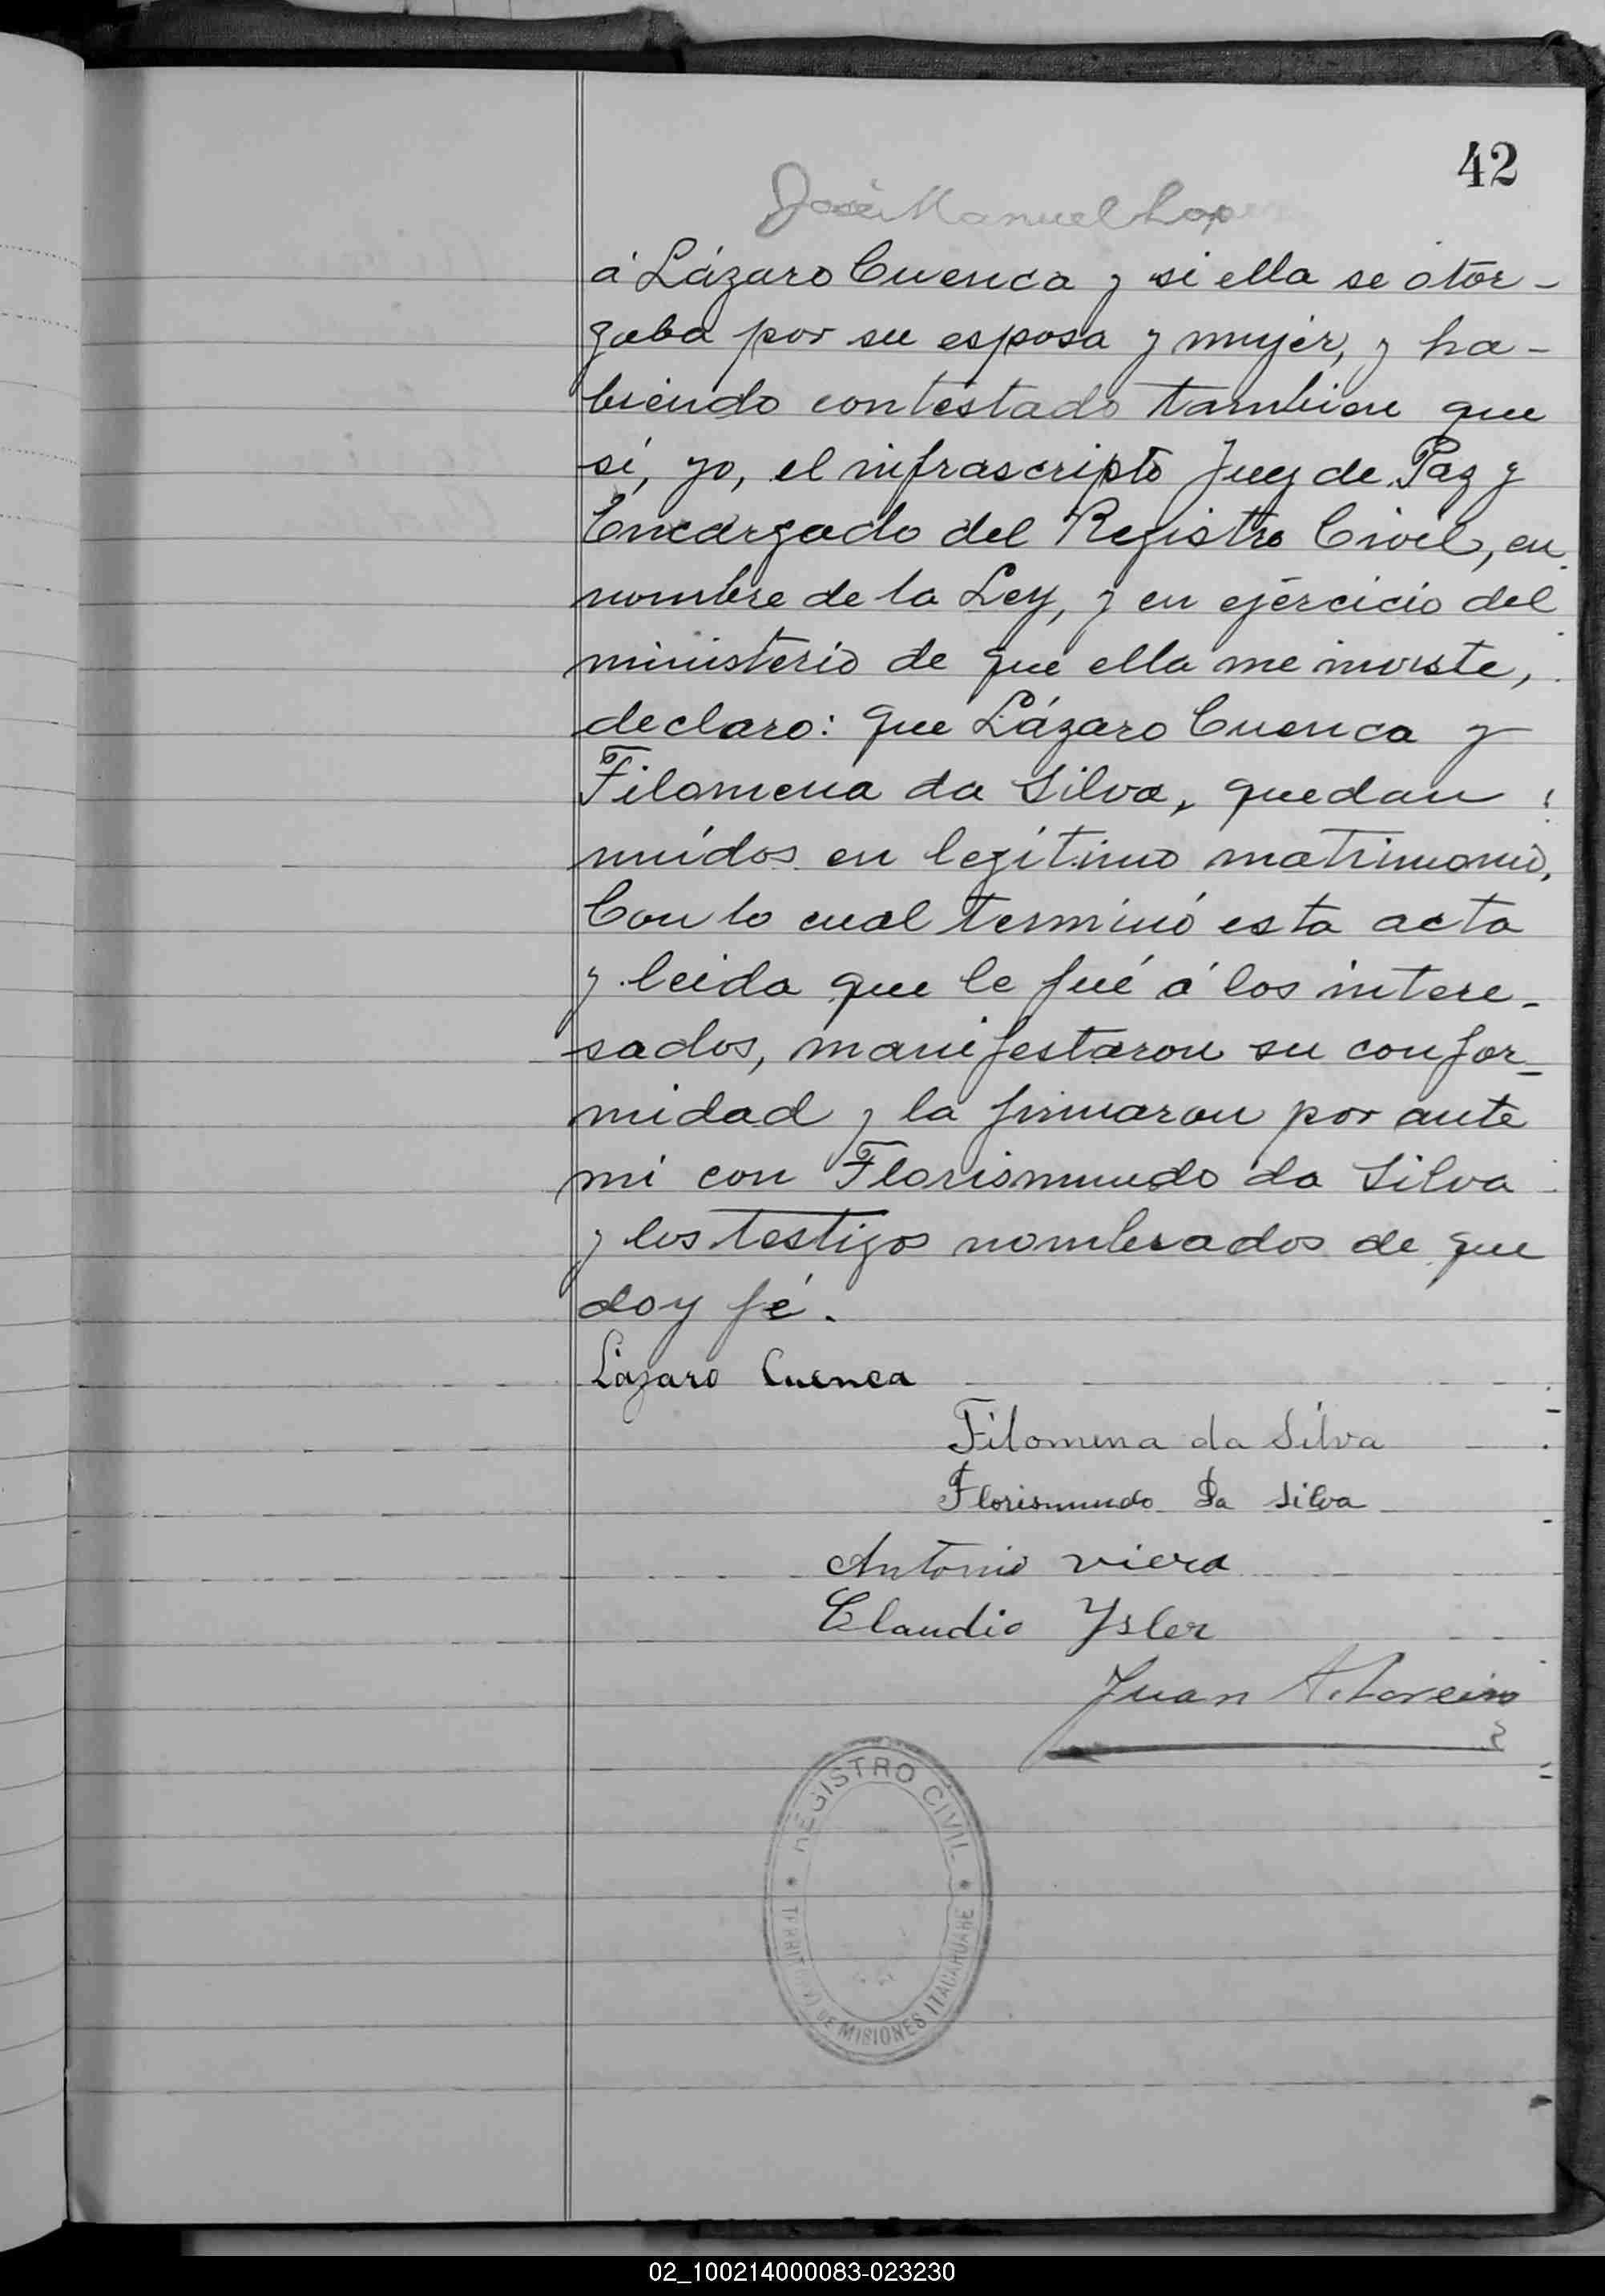 42
José Manuel Lop
á Lázaro Cuenca y si ella se otor-
gaba por su esposa y mujer, y ha-
biendo contestado tambien que
si, yo, el infrascripto Juez de Paz y
Encargado del Registro Civil, en
nombre de la Ley, y en ejercicio del
ministerio de que ella me inviste,
declaro: que Lázaro Cuenca y
Filomena da Silva, quedan
unidos en legítimo matrimonio.
Con lo cual terminó esta acta
y leida que le fué á los intere-
sados, manifestaron su confor-
midad y la firmaron por ante
mi con Florismundo da Silva
y los testigos nombrados de que
doy fé.
Lázaro Cuenca
Filomena da Silva
Florismundo Da Silva
Antonio viera
Claudio Ysler
Juan A. Loreiro
REGISTRO CIVIL
TERRITORIO DE MISIONES ITACARUARE
02_100214000083-023230